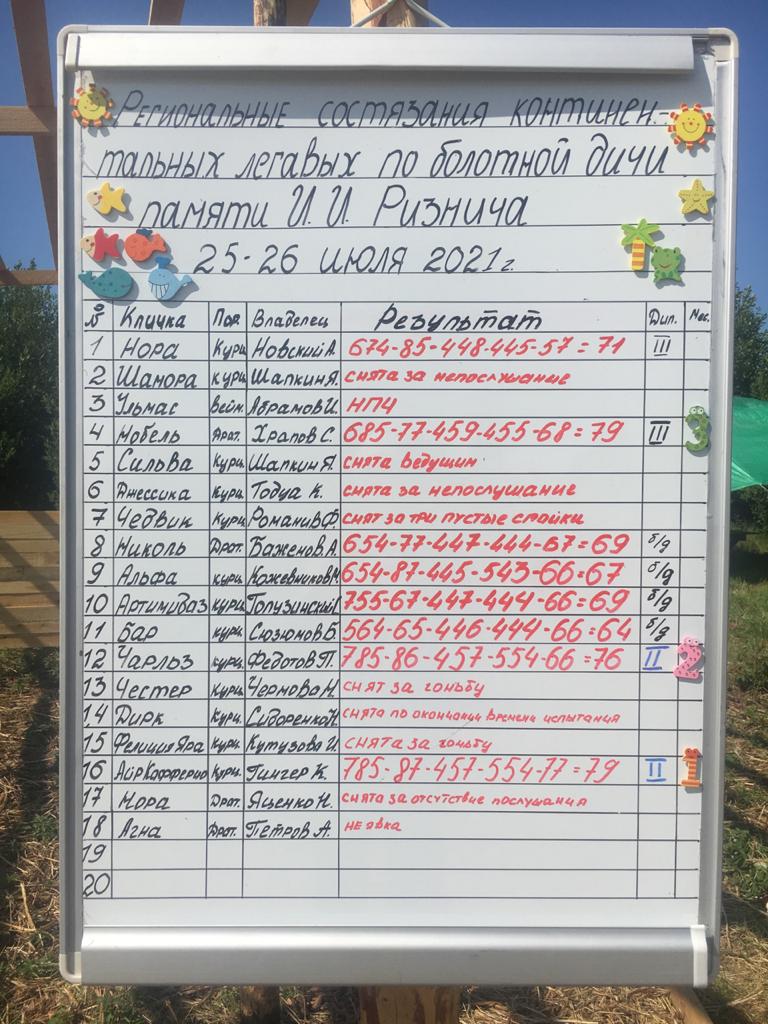 Региональные состязания континен-
тальных легавых по болотной дичи
памяти И. И. Ризнича
25-26 июля 2021г.
№ Кличка Пор. Владелец Результат Дип. Мес.
1 Нора Курц. Новский А. 674-85-448-445-57=71 III
2 Шамора курц. Шапкин Я. снята за непослушание
3 Ульмас Вейм. Абрамов И. НПЧ
4 Мобель Драт. Храпов С. 685-77-459-455-68=79 III 3
5 Сильва Курц. Шапкин Я. снята ведущим
6 Джессика Курц. Тодуа К. снята за непослушание
7 Чедвик Курц. Романив Ф. снят за три пустые стойки
8 Миколь Драт. Баженов А. 654-77-447-444-67=69 б/д
9 Альфа курц. Кожевников М. 654-87-445-543-66=67 б/д
10 Артимидаз курц. 755-67-447-444-66=69 б/д
11 Бар курц. Сюзюмов Б. 564-65-446-444-66=64 б/д
12 Чарльз курц. Федотов П. 785-86-457-554-66=76 II 2
13 Честер курц. Чернова Н. снят за гоньбу
14 Дирк Курц. Сидоренко Н. снята по окончании времени испытания
15 Фелиция Яра курц. Кутузова И. снята за гоньбу
16 Айр Кафферно Курц. Гингер К. 785-87-457-554-77=79 II 1
17 Мора Драт. Яценко Н. снята за отсутствие послушания
18 Агна Драт. Петров А. не явка
19
20